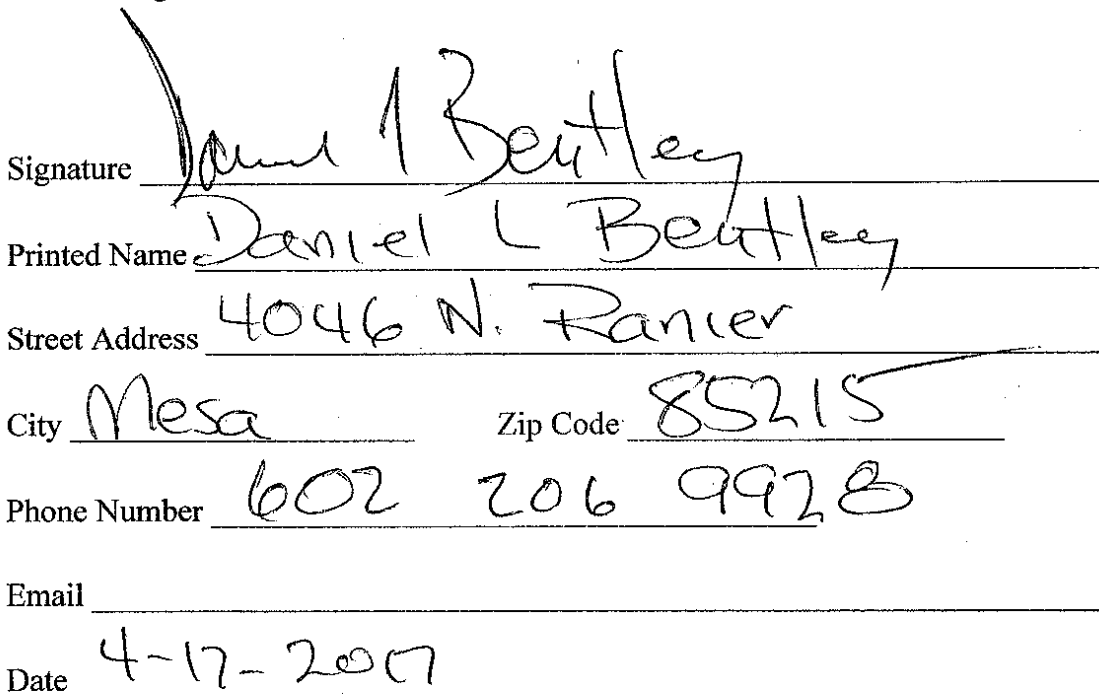 Signature Daniel L Bentley
Printed Name Daniel L Bentley
Street Address 4046 N. Ranier
City Mesa Zip Code 85215
Phone Number 602 206 9928
Email
Date 4-17-2017